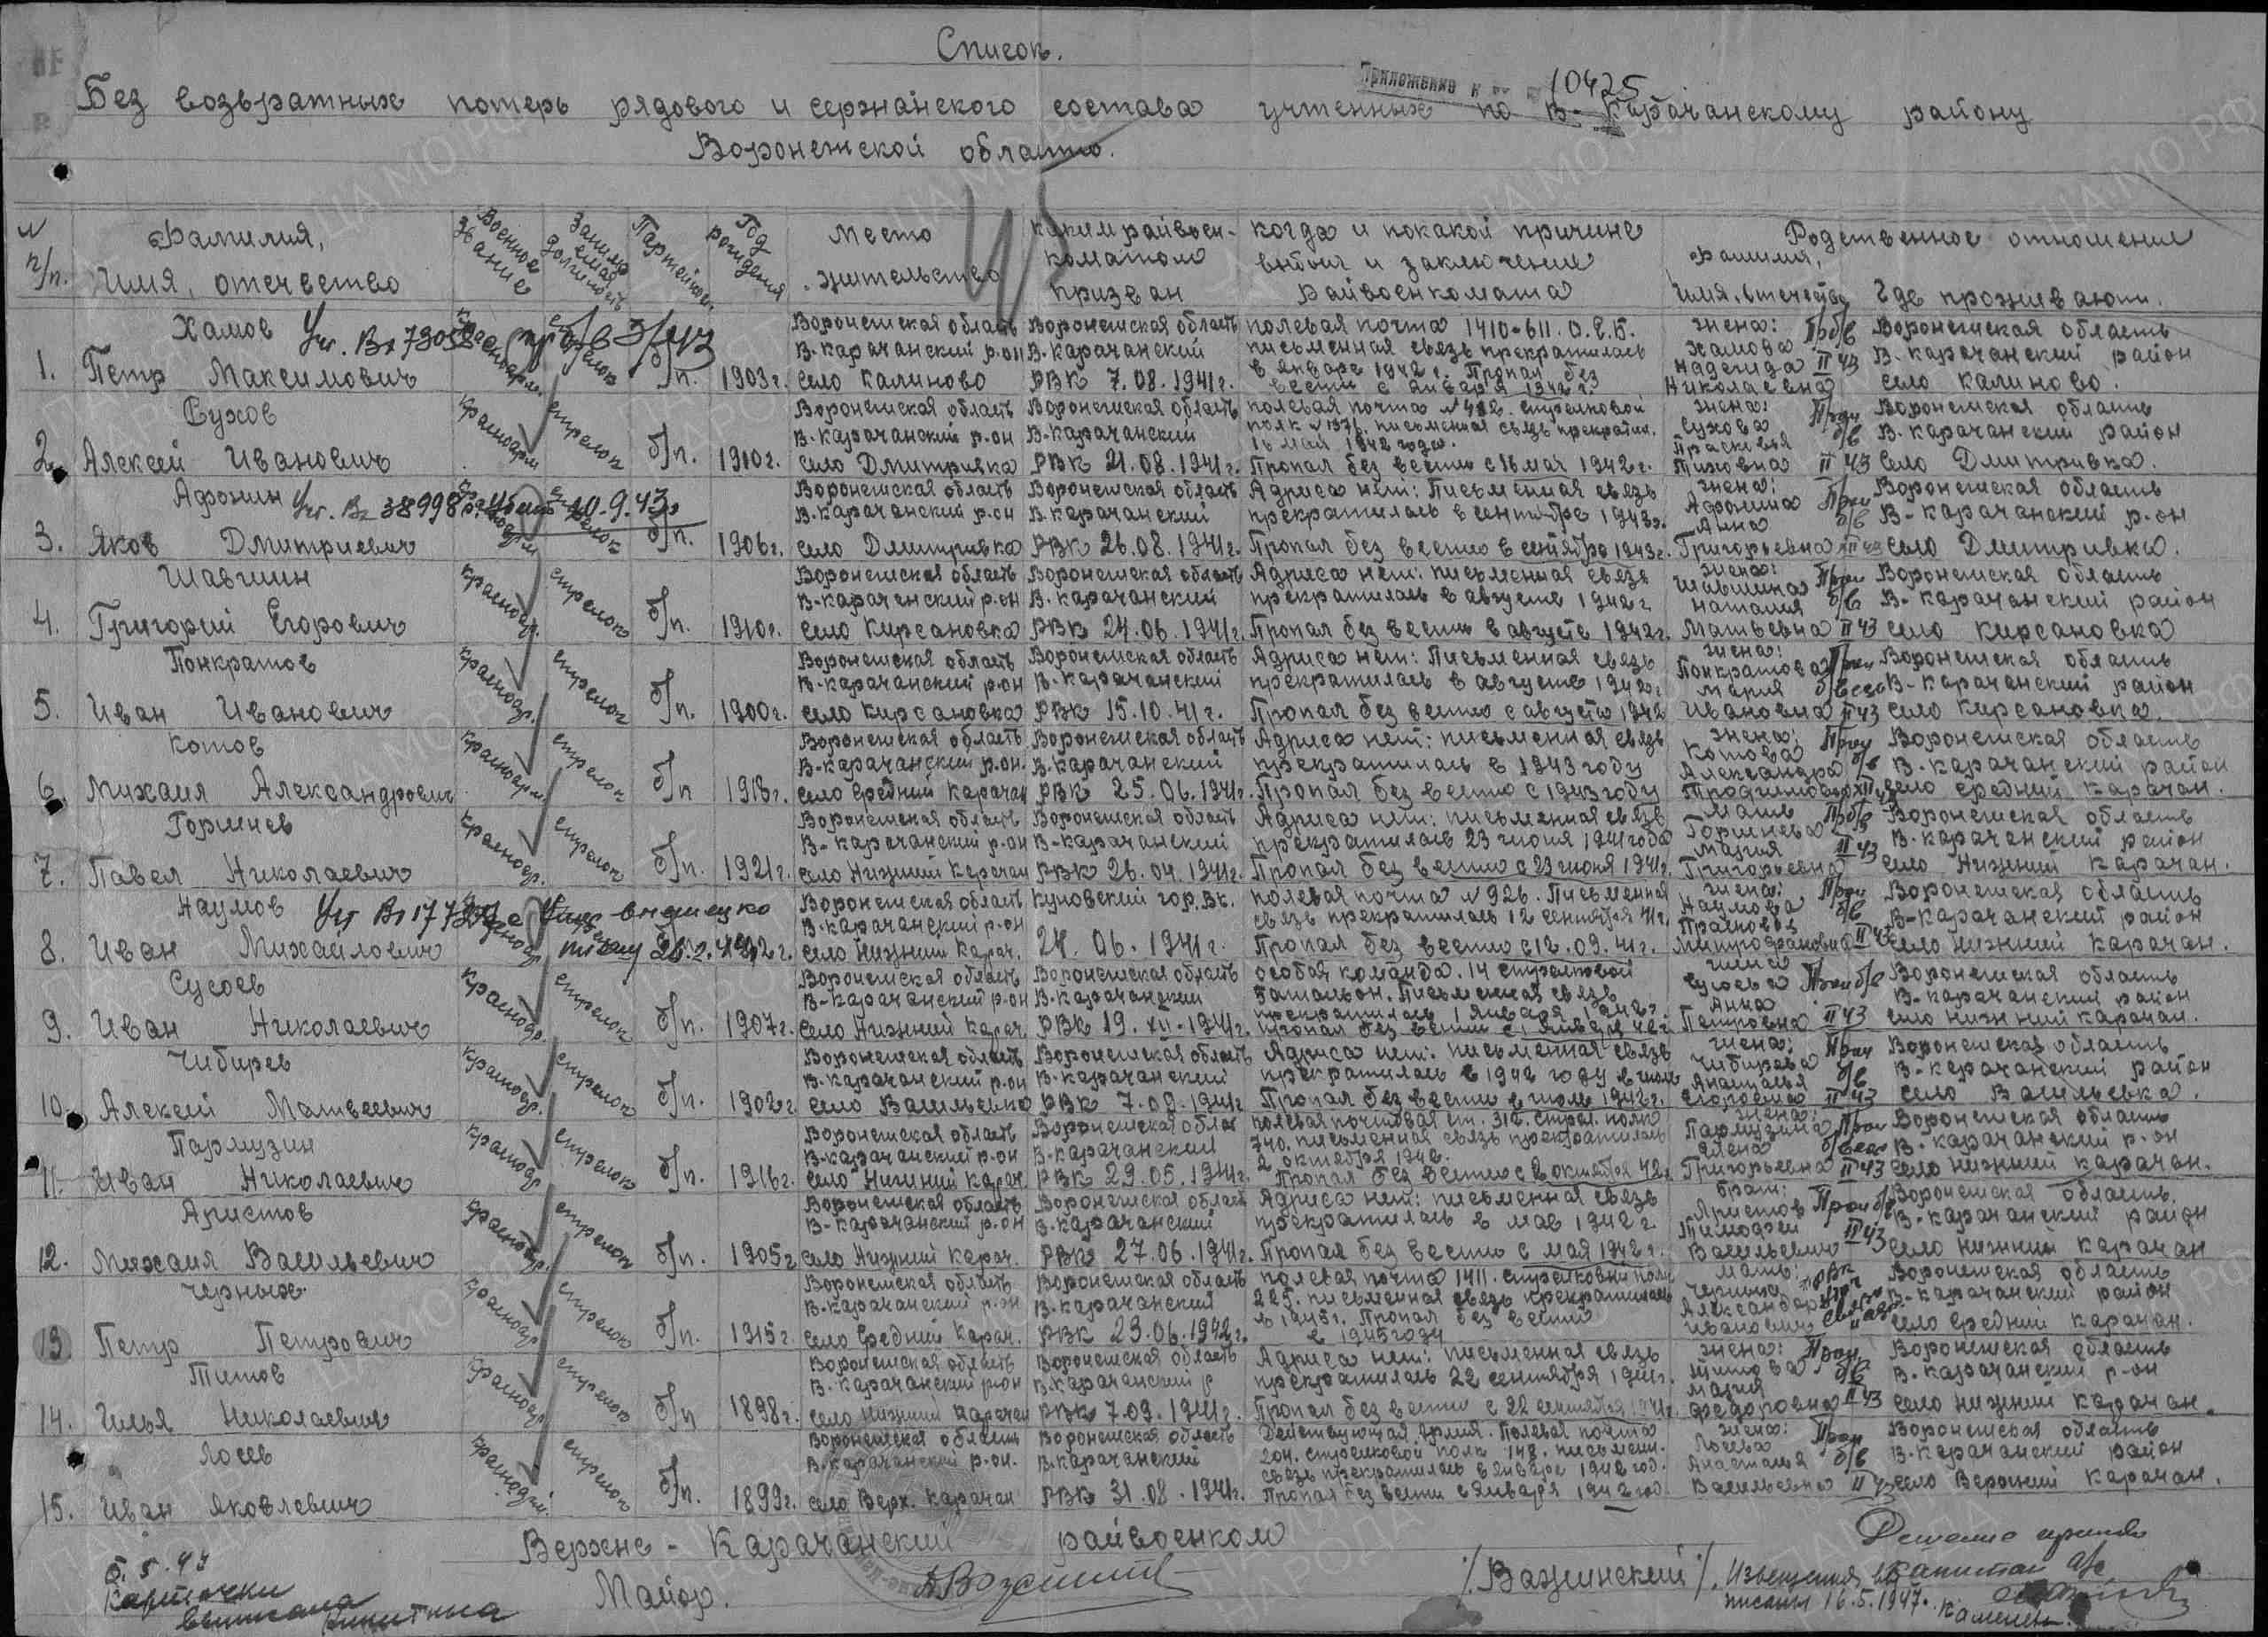 Список.
Приложение к 10425
Без возвратных потерь рядового и сержанского состава учтенных по В-Карачанскому району
Воронежской областю.
N п/п. Фамилия, Имя, отечество Военное звание Занимаемая должность Партейност. Год рождения Место жительство Каким райвоенкоматом призван Когда и покакой причине выбыл и заключение Райвоенкомата Родственное отношение Фамилия, Имя, отечество Где проживают.
1. Хамов Петр Максимович стрелок б/п. 1903 г. Воронежская область В. Карачанский р-он село Калиново Воронежская область В. Карачанский РВК 7.08.1941 г. полевая почта 1410-611. О.Е.Б. письменная связь прекратилась в январе 1942 г. Пропал без вести с января 1942 г. жена: Хамова Надежда Николаевна Пр б/в II 43 Воронежская область В. Карачанский район село Калиново.
Уч. Вх 7305
2. Сухов Алексей Иванович красноарм стрелок б/п. 1910 г. Воронежская область В. Карачанский р-он село Дмитривка Воронежская область В-Карачанский РВК 21.08.1941 г. полевая почта N 482. стрелковой полк N 1376. письменная связь прекратил. 16 мая 1942 года. Пропал без вести с 16 мая 1942 г. жена: Сухова Прасковья Тиховна II 43 Воронежская область В. Карачанский район село Дмитривка.
3. Афонин Яков Дмитриевич б/п. 1906 г. Воронежская область В. Карачанский р-он село Дмитривка Воронежская область В. Карачанский РВК 26.08.1941 г. Адриса нет: Письменная связь прекратилась в сентебре 1943 г. Пропал без вестю в сентября 1943 г. жена: Афонина Анна Григорьевна б/в Воронежская область В-Карачанский р-он село Дмитривка.
Уч. Вх 38998 Убит 20.9.43 г
4. Шавшин Григорий Егорович красноар. стрелок б/п. 1910 г. Воронежская область В-Карачанский р-он село Кирсановка Воронежская область В. Карачанский РВК 24.06.1941 г. Адриса нет: письменная связь прекратилась в августе 1942 г Пропал без вестю в августе 1942 г. жена: Шавшина Наталия Матвеевна б/в II 43 Воронежская область В-Карачанский район село Кирсановка
5. Понкратов Иван Иванович красноар. стрелок б/п. 1900 г. Воронежская область В-Карачанский р-он село Кирсановка Воронежская область В-Карачанский РВК 15.10.41 г. Адриса нет: Письменная связь прекратилась в августе 1942 г. Пропал без вестю с августа 1942 жена: Понкратова Мария Ивановна II 43 Воронежская область В-Карачанский район село Кирсановка.
6. Котов Михаил Александрович красноарм стрелок б/п 1918 г. Воронежская область В-Карачанский р-он. село Средний Карачан Воронежская область В. Карачанский РВК 25.06.1941 г. Адриса нет: письменная связь прекратилась в 1943 году Пропал без вестю с 1943 году жена: Котова Александра б/в Воронежская область В. Карачанский район село Средний Карачан.
7. Горшнев Павел Николаевич красноар. стрелок б/п. 1921 г. Воронежская область В-Карачанский р-он село Нижний Карачан Воронежская область В-Карачанский РВК 26.04.1941 г. Адриса нет: письменная связь прекратилась 23 июня 1941 года Пропал без вестю с 23 июня 1941 г. мать Горшнева Мария Григорьевна Пр б/в II 43 Воронежская область В. Карачанский район село Нижний Карачан.
8. Наумов Иван Михайлович Воронежская область В-Карачанский р-он село Нижний Карач. гор. Вк. 24.06.1941 г. полевая почта N 926. Письменная связь прекратилась 12 сентября 41 г. Пропал без вестю с 12.09.41 г. жена: Наумова Митрофановна б/в Воронежская область В-Карачанский район село Нижний Карачан.
9. Сусоев Иван Николаевич красноар. стрелок б/п. 1907 г. Воронежская область В-Карачанский р-он село Нижний Карач. Воронежская область В. Карачанский РВК 19.XII-1941 г. особая команда. 14 стрелковой батальон. Письменная связь прекратилась 1 января 1942 г. Пропал без вести с 1 января 42 г. жена Сусоева Анна Петровна б/в II 43 Воронежская область В-Карачанский район село Нижний Карачан.
10. Чибирев Алексей Матвеевич красноар. стрелок б/п. 1902 г. Воронежская область В. Карачанский р-он село Васильевка Воронежская область В. Карачанский РВК 7.09.1941 г Адриса нет: письменная связь прекратилась в 1942 году в июле Пропал без вести в июле 1942 г. жена: Чибирева Анастасья Егоровна б/в II 43 Воронежская область В-Карачанский район село Васильевка.
11. Пармузин Иван Николаевич красноар стрелок б/п. 1916 г. Воронежская область В-Карачанский р-он село Нижний Карач. Воронежская облас В-Карачанский РВК 29.05.1941 г. полевая почтовая ст. 312. стрел. полк 740. письменная связь прекратилась 2 октября 1942. Пропал без вестю с 2 октября 42 г. жена: Пармузина Елена Григорьевна II 43 Воронежская область В-Карачанский р-он село Нижний Карачан.
12. Аристов Михаил Васильевич красноар. стрелок б/п. 1905 г. Воронежская область В-Карачанский р-он село Нижний Карач. Воронежская област В. Карачанский РВК 27.06.1941 г. Адриса нет: письменная связь прекратилась в мае 1942 г Пропал без вестю с мая 1942 г. брат: Аристов Тимофей Васильевич II 43 Воронежская область. В-Карачанский район село Нижний Карачан
13. Черных Петр Петрович красноар. стрелок б/п. 1915 г. Воронежская область В-Карачанский р-он село Средний Карач. Воронежская область В. Карачанский РВК 23.06.1942 г. полевая почта 1411. стрелковый полк 225. письменная связь прекратилась в 1945 г. Пропал без вести в 1945 году мать: Иванович Воронежская область В-Карачанский район село Средний Карачан.
14. Титов Илья Николаевич красноар. стрелок б/п 1898 г. Воронежская область В. Карачанский р-он село Нижний Карачан Воронежская область В. Карачанский РВК 7.09.1941 г. Адриса нет: письменная связь прекратилась 22 сентября 1941 г. Пропал без вестю с 22 сентября 1941 г. жена: Титова Мария Федоровна б/в II 43 Воронежская область В. Карачанский р-он село Нижний Карачан.
15. Лосев Иван Яковлевич стрелок б/п. 1899 г. Воронежская область В. Карачанский р-он. село Верх. Карачан Воронежская область В. Карачанский РВК 31.08.1941 г. Действующая Армия. Полевая почта 204. стрелковой полк 148. письмен. связь прекратилась в январе 1942 год. Пропал без вести с января 1942 год. жена: Лосева Анастасья Васильевна б/в Воронежская область В. Карачанский район село Верхний Карачан.
Верхне-Карачанский райвоенком
Майор. /Важинский/.
5.5.47
Карточки
Извещения
16.5.1947.